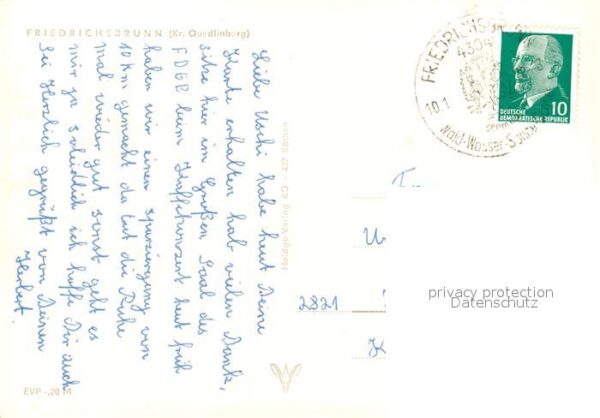 FRIEDRICHSBRUNN (Kr. Quedlinburg)
Liebe Uschi habe heut Deine
Karte erhalten hab vielen Dank,
sitze hier im Großen Saal des
FDGB beim Kaffekonzert heut früh
haben wir einen spaziergang von
10 Km gemacht da tut die Ruhe
mal wieder gut sonst geht es
mir ja schiedlich ich hoffe Dir auch
Sei Herzlich gegrüßt von Deinen
Herbert.
EVP -,20 M
Heldge-Verlag KG · 437 Köthen
FRIEDRICHSBR
4304
10.1
Wald-Wasser-S
10
DEUTSCHE
DEMOKRATISCHE REPUBLIK
2821
privacy protection
Datenschutz